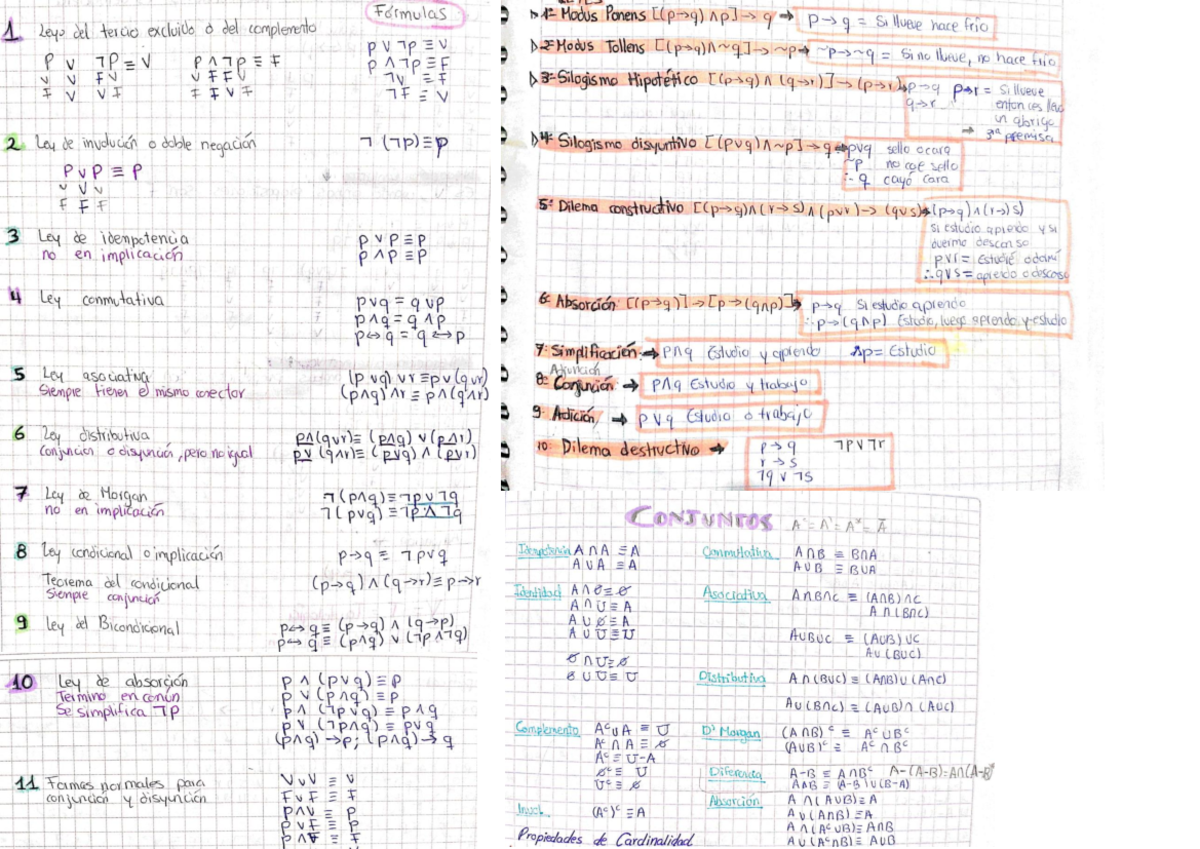 Fórmulas
1 Leyes del tercio excluido o del complemento
P ∨ ¬P ≡ V P ∧ ¬P ≡ F
V V F V V F F V
F V V F F F V F
P ∨ ¬P ≡ V
P ∧ ¬P ≡ F
¬V ≡ F
¬F ≡ V
2 Ley de involución o doble negación ¬(¬P) ≡ P
P ∨ P ≡ P
V V V
F F F
3 Ley de idempotencia P ∨ P ≡ P
no en implicación P ∧ P ≡ P
4 Ley conmutativa p∨q = q∨p
p∧q = q∧p
p↔q = q↔p
5 Ley asociativa (p∨q)∨r ≡ p∨(q∨r)
Siempre tienen el mismo conector (p∧q)∧r ≡ p∧(q∧r)
6 Ley distributiva p∧(q∨r) ≡ (p∧q)∨(p∧r)
conjunción o disyunción, pero no igual p∨(q∧r) ≡ (p∨q)∧(p∨r)
7 Ley de Morgan ¬(p∧q) ≡ ¬p∨¬q
no en implicación ¬(p∨q) ≡ ¬p∧¬q
8 Ley condicional o implicación p→q ≡ ¬p∨q
Teorema del condicional (p→q)∧(q→r) ≡ p→r
Siempre conjunción
9 Ley del Bicondicional p↔q ≡ (p→q)∧(q→p)
p↔q ≡ (p∧q)∨(¬p∧¬q)
10 Ley de absorción p∧(p∨q) ≡ p
Término en común p∨(p∧q) ≡ p
Se simplifica ¬p p∧(¬p∨q) ≡ p∧q
p∨(¬p∧q) ≡ p∨q
(p∧q)→p; (p∧q)→q
11 Formas normales para V∨V ≡ V
conjunción y disyunción F∨F ≡ F
P∧V ≡ P
P∨F ≡ P
P∧F ≡ F
1º Modus Ponens [(p→q)∧p]→q → p→q = Si llueve hace frío
2º Modus Tollens [(p→q)∧~q]→~p → ~p→~q = Si no llueve, no hace frío
3º Silogismo Hipotético [(p→q)∧(q→r)]→(p→r) → p→q p→r = Si llueve
q→r entonces llevo
un abrigo
→ 3ª premisa
4º Silogismo disyuntivo [(p∨q)∧~p]→q → p∨q sello o cara
~p no cae sello
∴ q cayó cara
5º Dilema constructivo [(p→q)∧(r→s)∧(p∨r)→(q∨s) → (p→q)∧(r→s)
Si estudio aprendo y si
duermo descanso
p∨r = Estudié o dormí
∴ q∨s = aprendo o descanso
6º Absorción [(p→q)]→[p→(q∧p)] → p→q Si estudio aprendo
∴ p→(q∧p) Estudio, luego aprendo y estudio
7. Simplificación → p∧q Estudio y aprendo ∴p = Estudio
Adjunción
8º Conjunción → p∧q Estudio y trabajo
9. Adición → p∨q Estudio o trabajo
10. Dilema destructivo → p→q ¬p∨¬r
r→s
¬q∨¬s
CONJUNTOS A' = A' = A* = Ā
Idempotencia A∩A ≡ A Conmutativa A∩B ≡ B∩A
A∪A ≡ A A∪B ≡ B∪A
Identidad A∩∅ ≡ ∅ Asociativa A∩B∩C ≡ (A∩B)∩C
A∩U ≡ A A∩(B∩C)
A∪∅ ≡ A
A∪U ≡ U A∪B∪C ≡ (A∪B)∪C
A∪(B∪C)
∅∩U ≡ ∅
∅∪U ≡ U Distributiva A∩(B∪C) ≡ (A∩B)∪(A∩C)
A∪(B∩C) ≡ (A∪B)∩(A∪C)
Complemento Aᶜ∪A ≡ U D'Morgan (A∩B)ᶜ ≡ Aᶜ∪Bᶜ
Aᶜ∩A ≡ ∅ (A∪B)ᶜ ≡ Aᶜ∩Bᶜ
Aᶜ ≡ U-A
∅ᶜ ≡ U Diferencia A-B ≡ A∩Bᶜ A-(A-B)=A∩(A-B)ᶜ
Uᶜ ≡ ∅ A∆B ≡ (A-B)∪(B-A)
Absorción A∩(A∪B) ≡ A
Invol. (Aᶜ)ᶜ ≡ A A∪(A∩B) ≡ A
A∩(Aᶜ∪B) ≡ A∩B
Propiedades de Cardinalidad A∪(Aᶜ∩B) ≡ A∪B